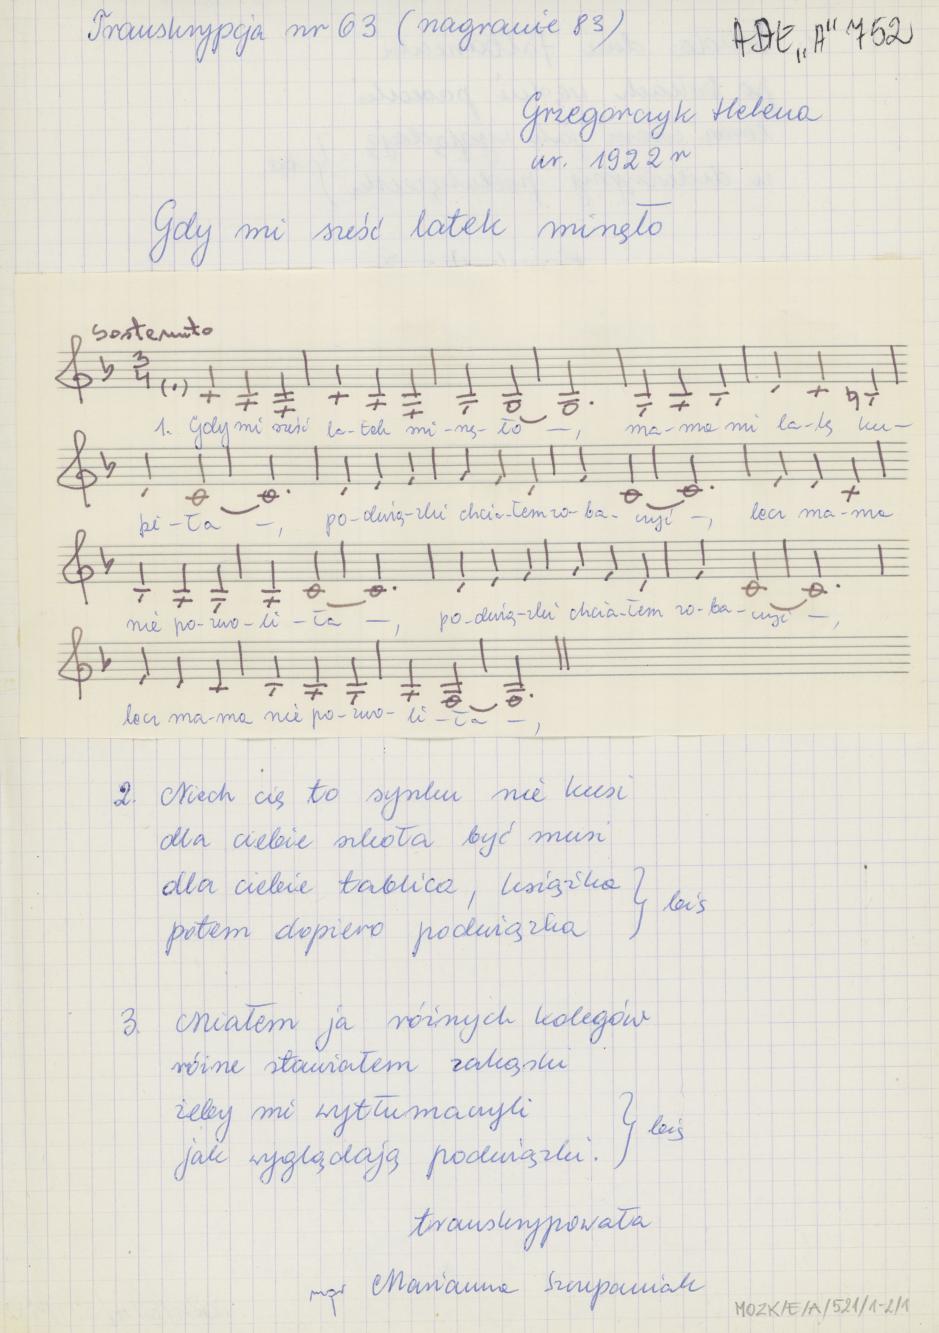 Transkrypcja nr 63 (nagranie 83)
ADE „A" 752
Grzegorczyk Helena
ur. 1922 r
Gdy mi sześć latek minęło
Sostenuto
3/4
1. Gdy mi sześć la-tek mi-nę-ło —, ma-ma mi la-lę ku-
pi-ła —, po-dwią-zki chcia-łem zo-ba-czyć —, lecz ma-ma
nie po-zwo-li-ła —, po-dwią-zki chcia-łem zo-ba-czyć —,
lecz ma-ma nie po-zwo-li-ła —,
2. Niech cię to synku nie kusi
dla ciebie szkoła być musi
dla ciebie tablica, książka } bis
potem dopiero podwiązka
3. Miałem ja różnych kolegów
różne stawiałem zakąski
żeby mi wytłumaczyli } bis
jak wyglądają podwiązki.
transkrypowała
mgr Marianna Szczepaniak
MOZK/E/A/521/1-2/1